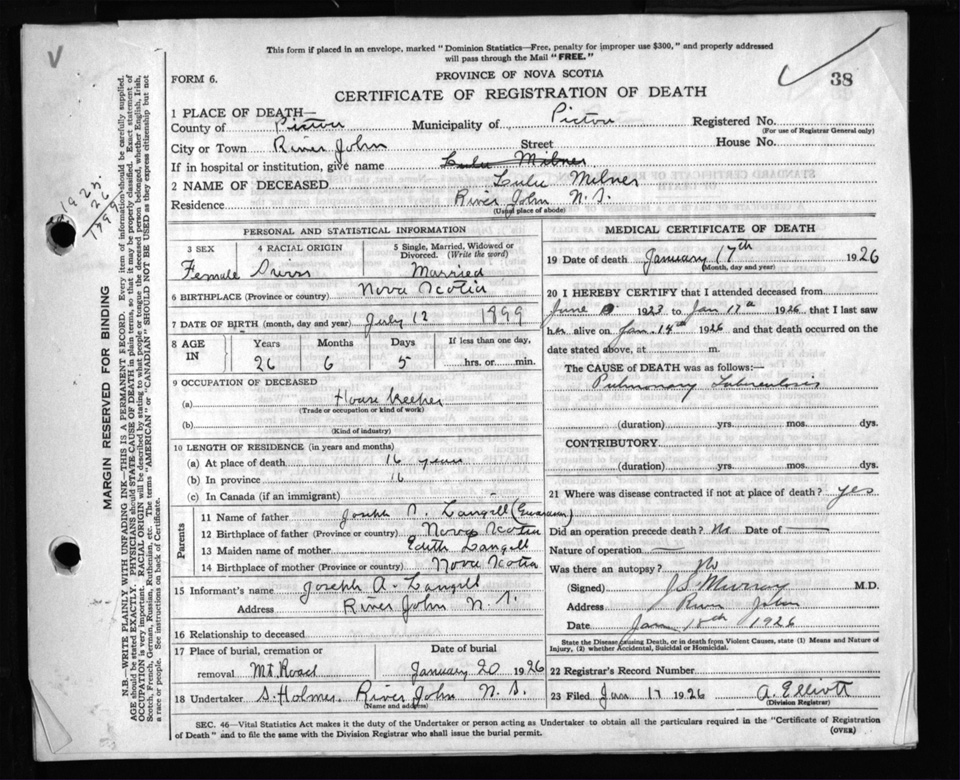 V
This form if placed in an envelope, marked "Dominion Statistics—Free, penalty for improper use $300," and properly addressed
will pass through the Mail "FREE."
FORM 6.
PROVINCE OF NOVA SCOTIA
38
CERTIFICATE OF REGISTRATION OF DEATH
1 PLACE OF DEATH—
County of Pictou Municipality of Pictou Registered No.
(For use of Registrar General only)
City or Town River John Street House No.
If in hospital or institution, give name Lulu Milner
2 NAME OF DECEASED Lulu Milner
Residence River John N.S.
(Usual place of abode)
PERSONAL AND STATISTICAL INFORMATION
3 SEX 4 RACIAL ORIGIN 5 Single, Married, Widowed or
Divorced. (Write the word)
Female Swiss Married
6 BIRTHPLACE (Province or country) Nova Scotia
7 DATE OF BIRTH (month, day and year) July 12 1899
8 AGE IN Years Months Days If less than one day,
26 6 5 hrs. or min.
9 OCCUPATION OF DECEASED
(a) House keeper
(Trade or occupation or kind of work)
(b)
(Kind of industry)
10 LENGTH OF RESIDENCE (in years and months)
(a) At place of death 16 years
(b) In province 16
(c) In Canada (if an immigrant)
Parents
11 Name of father Joseph A. Langill (Guardian)
12 Birthplace of father (Province or country) Nova Scotia
13 Maiden name of mother Edith Langill
14 Birthplace of mother (Province or country) Nova Scotia
15 Informant's name Joseph A. Langill
Address River John N.S.
16 Relationship to deceased
17 Place of burial, cremation or Date of burial
removal Mt. Road January 20 1926
18 Undertaker S. Holmes, River John N.S.
(Name and address)
MEDICAL CERTIFICATE OF DEATH
19 Date of death January 17th 1926
(Month, day and year)
20 I HEREBY CERTIFY that I attended deceased from
June 1923 to Jan 17th 1926 that I last saw
her alive on Jan. 14th 1926 and that death occurred on
date stated above, at m.
The CAUSE of DEATH was as follows:—
Pulmonary Tuberculosis
(duration) yrs. mos. dys.
CONTRIBUTORY
(duration) yrs. mos. dys.
21 Where was disease contracted if not at place of death? yes
Did an operation precede death? No Date of —
Nature of operation —
Was there an autopsy? No
(Signed) J S Murray M.D.
Address River John
Date Jan 18th 1926
State the Disease causing Death, or in death from Violent Causes, state (1) Means and Nature of
Injury, (2) whether Accidental, Suicidal or Homicidal.
22 Registrar's Record Number
23 Filed Jan 17 1926 A. Elliott
(Division Registrar)
SEC. 46—Vital Statistics Act makes it the duty of the Undertaker or person acting as Undertaker to obtain all the particulars required in the "Certificate of Registration
of Death" and to file the same with the Division Registrar who shall issue the burial permit.
(OVER)
MARGIN RESERVED FOR BINDING
N.B.—WRITE PLAINLY, WITH UNFADING INK—THIS IS A PERMANENT RECORD. Every item of information should be carefully supplied.
AGE should be stated EXACTLY. PHYSICIANS should STATE CAUSE OF DEATH in plain terms, so that it may be properly classified. Exact statement of
OCCUPATION is very important. RACIAL ORIGIN will be described by stating to what people or tongue the deceased person belonged, whether English, Irish,
Scotch, French, German, Russian, Ruthenian, etc. The terms "AMERICAN" or "CANADIAN" SHOULD NOT BE USED as they express citizenship but not
a race or people. See instructions on back of Certificate.
1925
26
1899